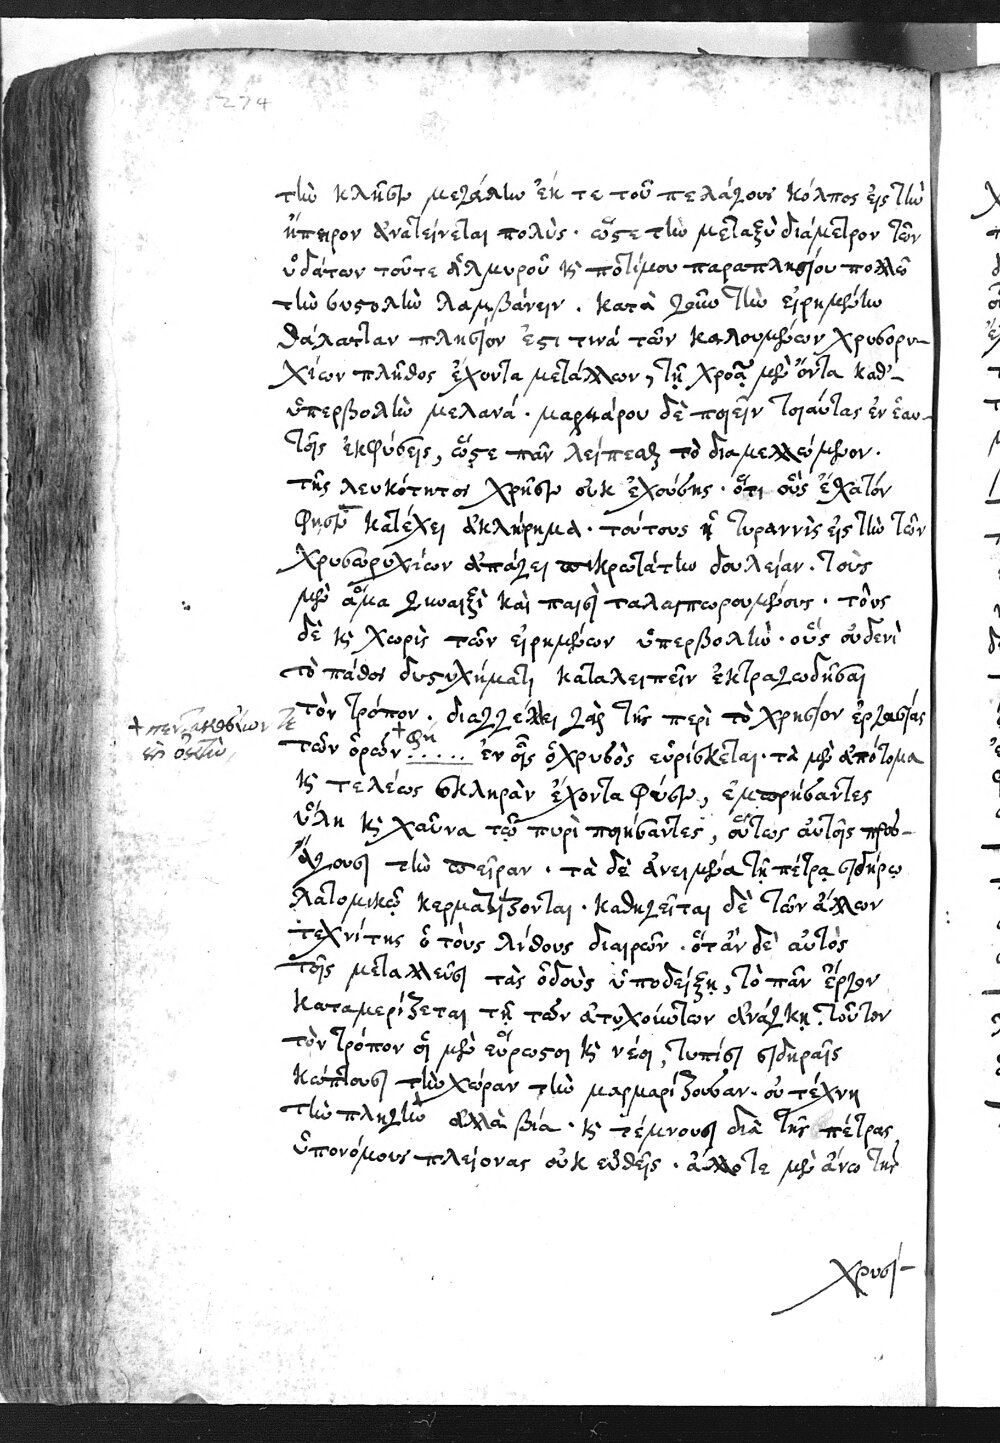 274
τὴν κλῆσιν μεγάλην ἐκ τε τοῦ πελάγους κόλπος εἰς τὴν
ἤπειρον ἀνατείνεται πολύς · ὥστε τὴν μεταξὺ διάμετρον τῶν
ὑδάτων τοῦτε ἁλμυροῦ κ̀ ποτίμου παραπλησίου πολλῶ
τὴν συστολὴν λαμβάνειν . κατὰ γοῦν τὴν εἰρημένην
θάλατταν πλησίον ἐστι τινά τῶν καλουμένων χρυσορυ-
χίων πλῆθος ἔχοντα μετάλλων, τῇ χροᾷ μὲν ὄντα καθ'-
ὑπερβολὴν μελανά · μαρμάρου δὲ ποιεῖν τοιαύτας ἐν ἑαυ-
τοῖς ἐκφύσεις, ὥστε πᾶν λείπεσθαι τὸ διαμελλώμενον ·
τῆς λευκότητος χρῆσιν οὐκ ἐχούσης · ὅτι οὓς ἔσχατόν
φησιν κατέχει ἀκλήρημα · τούτους ἡ τυραννὶς εἰς τὴν τῶν
χρυσωρυχίων ἀπάγει πικρωτάτην δουλείαν · τοὺς
μὲν ἅμα γυναιξὶ καὶ παισὶ ταλαιπωρουμένους · τοὺς
δὲ κ̀ χωρὶς τῶν εἰρημένων ὑπερβολὴν · οὓς οὐδενὶ
τὸ πάθος δυστυχήματι καταλειπεῖν ἐκτραγωδῆσαι
τὸν τρόπον · διαγγέλλει γὰρ τῆς περὶ τὸ χρησίον ἐργασίας
+ πεντακοσίων
τῶν ὀρῶν + φη ..... ἐν οἷς ὁ χρυσὸς εὑρίσκεται · τὰ μὲν ἀπότομα
κ̀ τελέως σκληρὰν ἔχοντα φύσιν, ἐμπρήσαντες
ὕλη κ̀ χαῦνα τῷ πυρὶ ποιήσαντες, οὕτως αὐτοῖς προσ-
άγουσι τὴν πεῖραν · τὰ δὲ ἀνειμένα τῇ πέτρᾳ σιδήρῳ
λατομικῷ κερματίζονται · καθηγεῖται δὲ τῶν ἄλλων
τεχνίτης ὁ τοὺς λίθους διαιρῶν · ὅτ' ἂν δὲ αὐτὸς
τοῖς μεταλλεῦσι τὰς ὁδοὺς ὑποδείξῃ, τὸ πᾶν ἔργον
καταμερίζεται τῇ τῶν ἀτυχούντων ἀνάγκῃ τοῦτον
τὸν τρόπον οἱ μὲν εὔρωστοι κ̀ νέοι, τυπίσι σιδηραῖς
κόπτουσι τὴν χώραν τὴν μαρμαρίζουσαν · οὐ τέχνῃ
τὴν πληγὴν ἀλλὰ βία · κ̀ τέμνουσι διὰ τῆς πέτρας
ὑπονόμους πλείονας οὐκ εὐθεῖς · ἄλλοτε μὲν ἄνω τῆς
χρυσί-